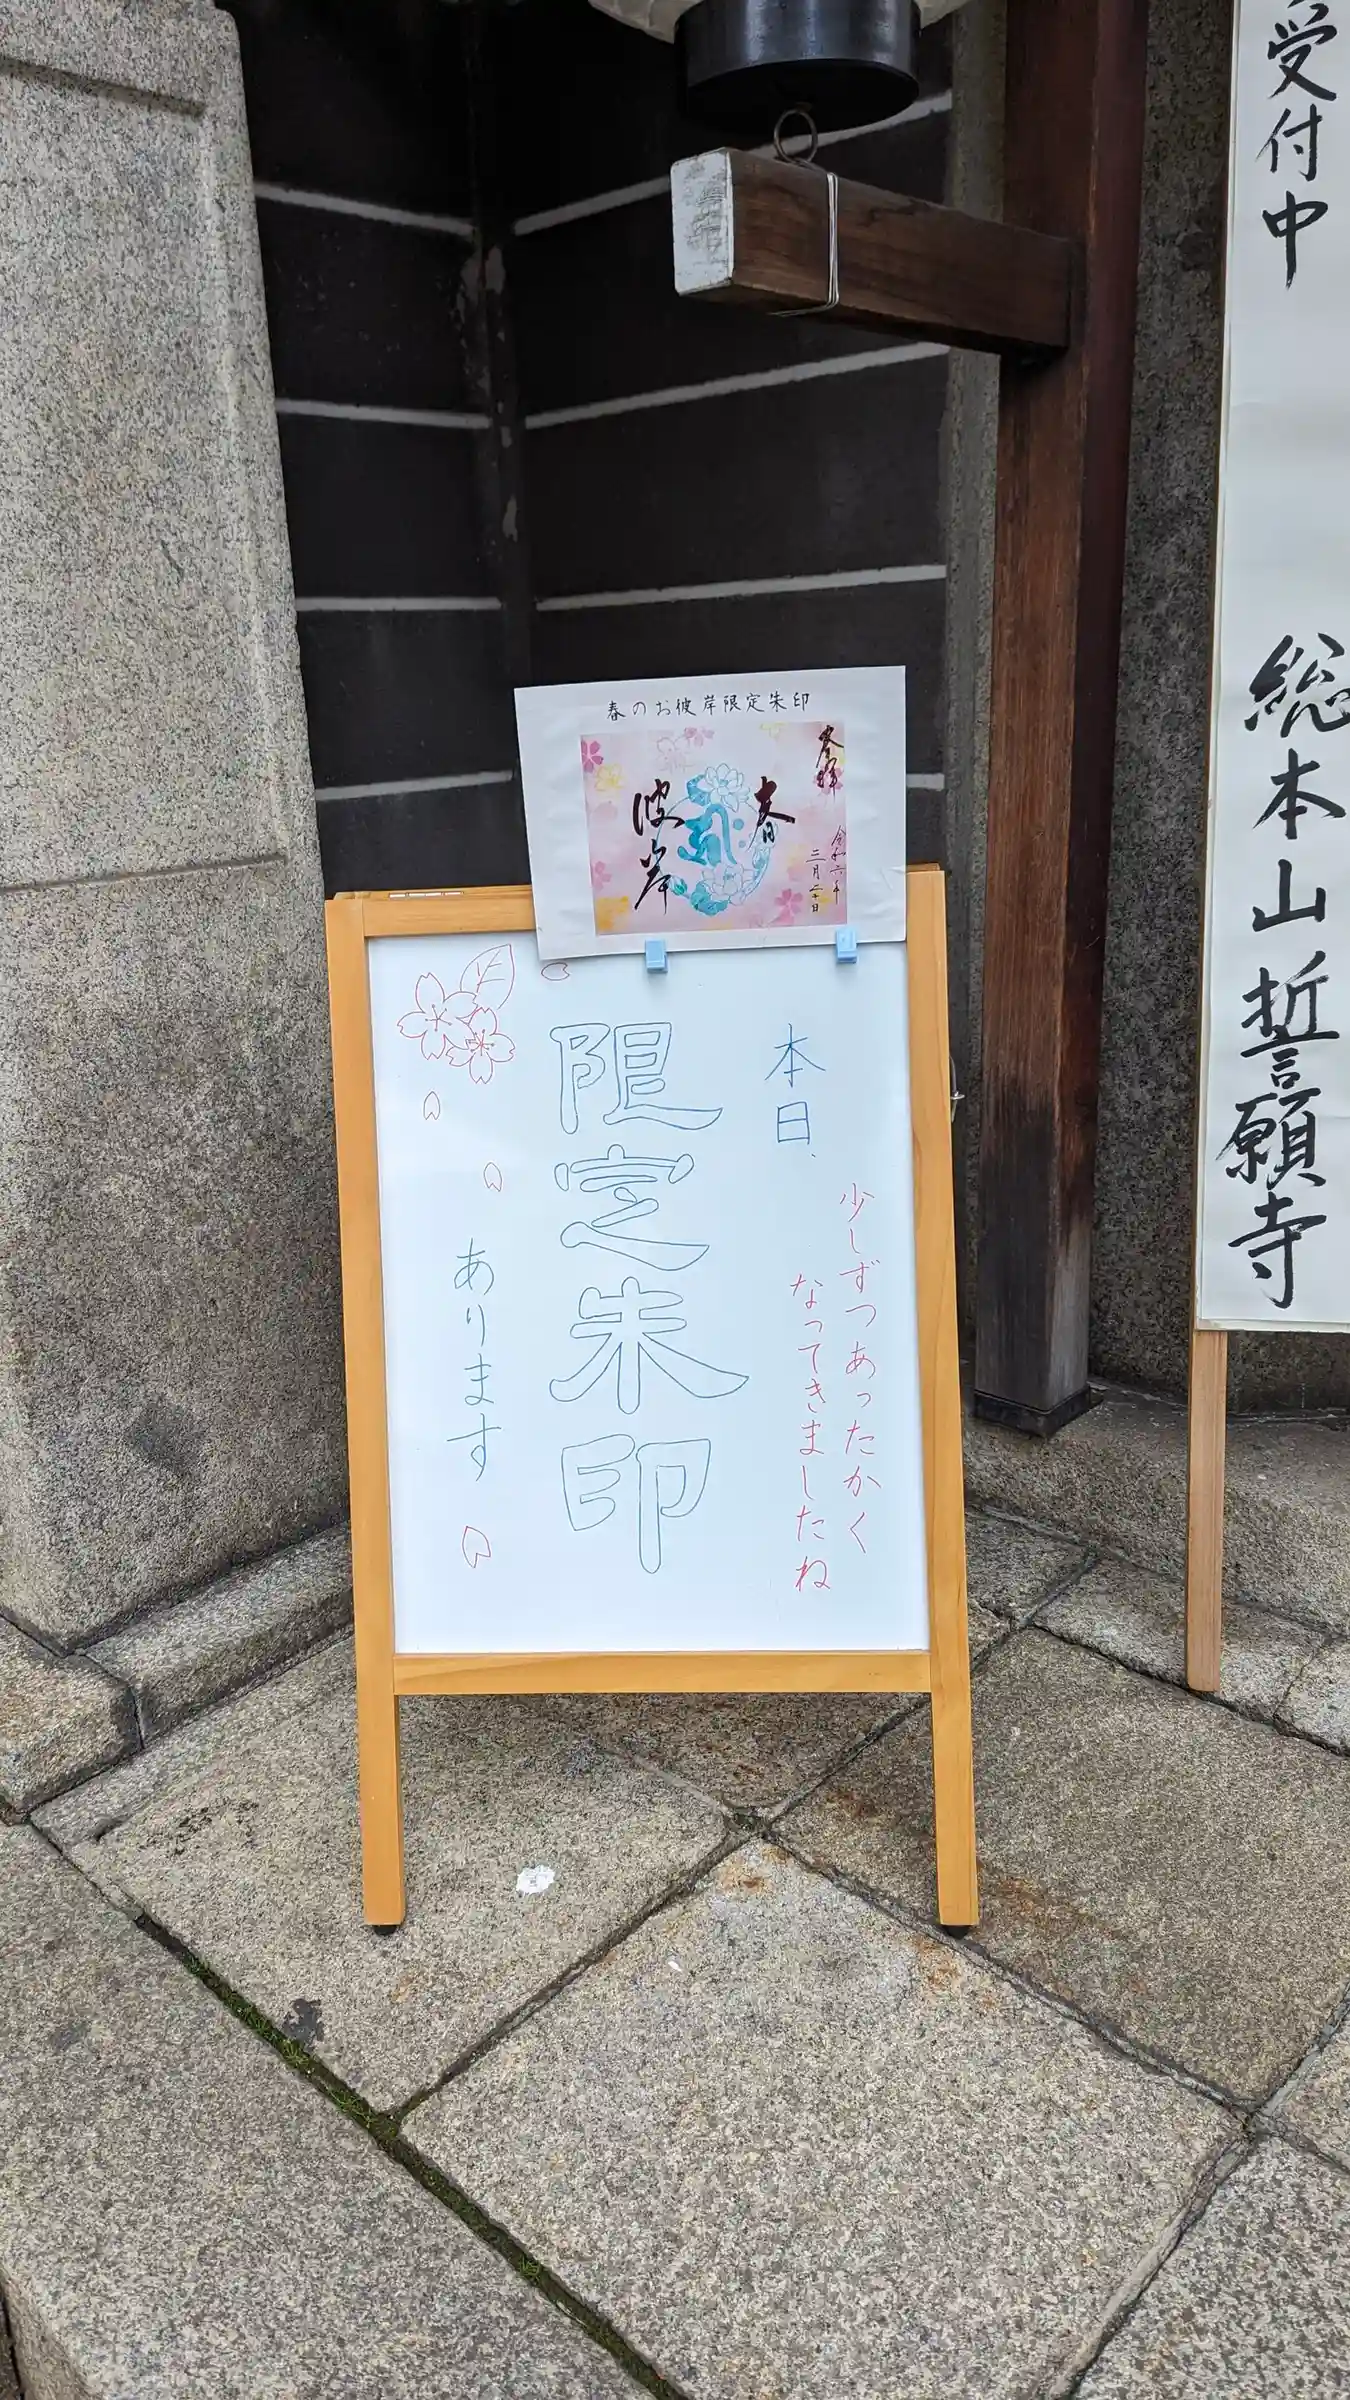 春のお彼岸限定朱印
奉拝
令和六年
三月二十日
春
彼岸
本日、
少しずつあったかく
なってきましたね
限定朱印
あります
受付中
総本山誓願寺